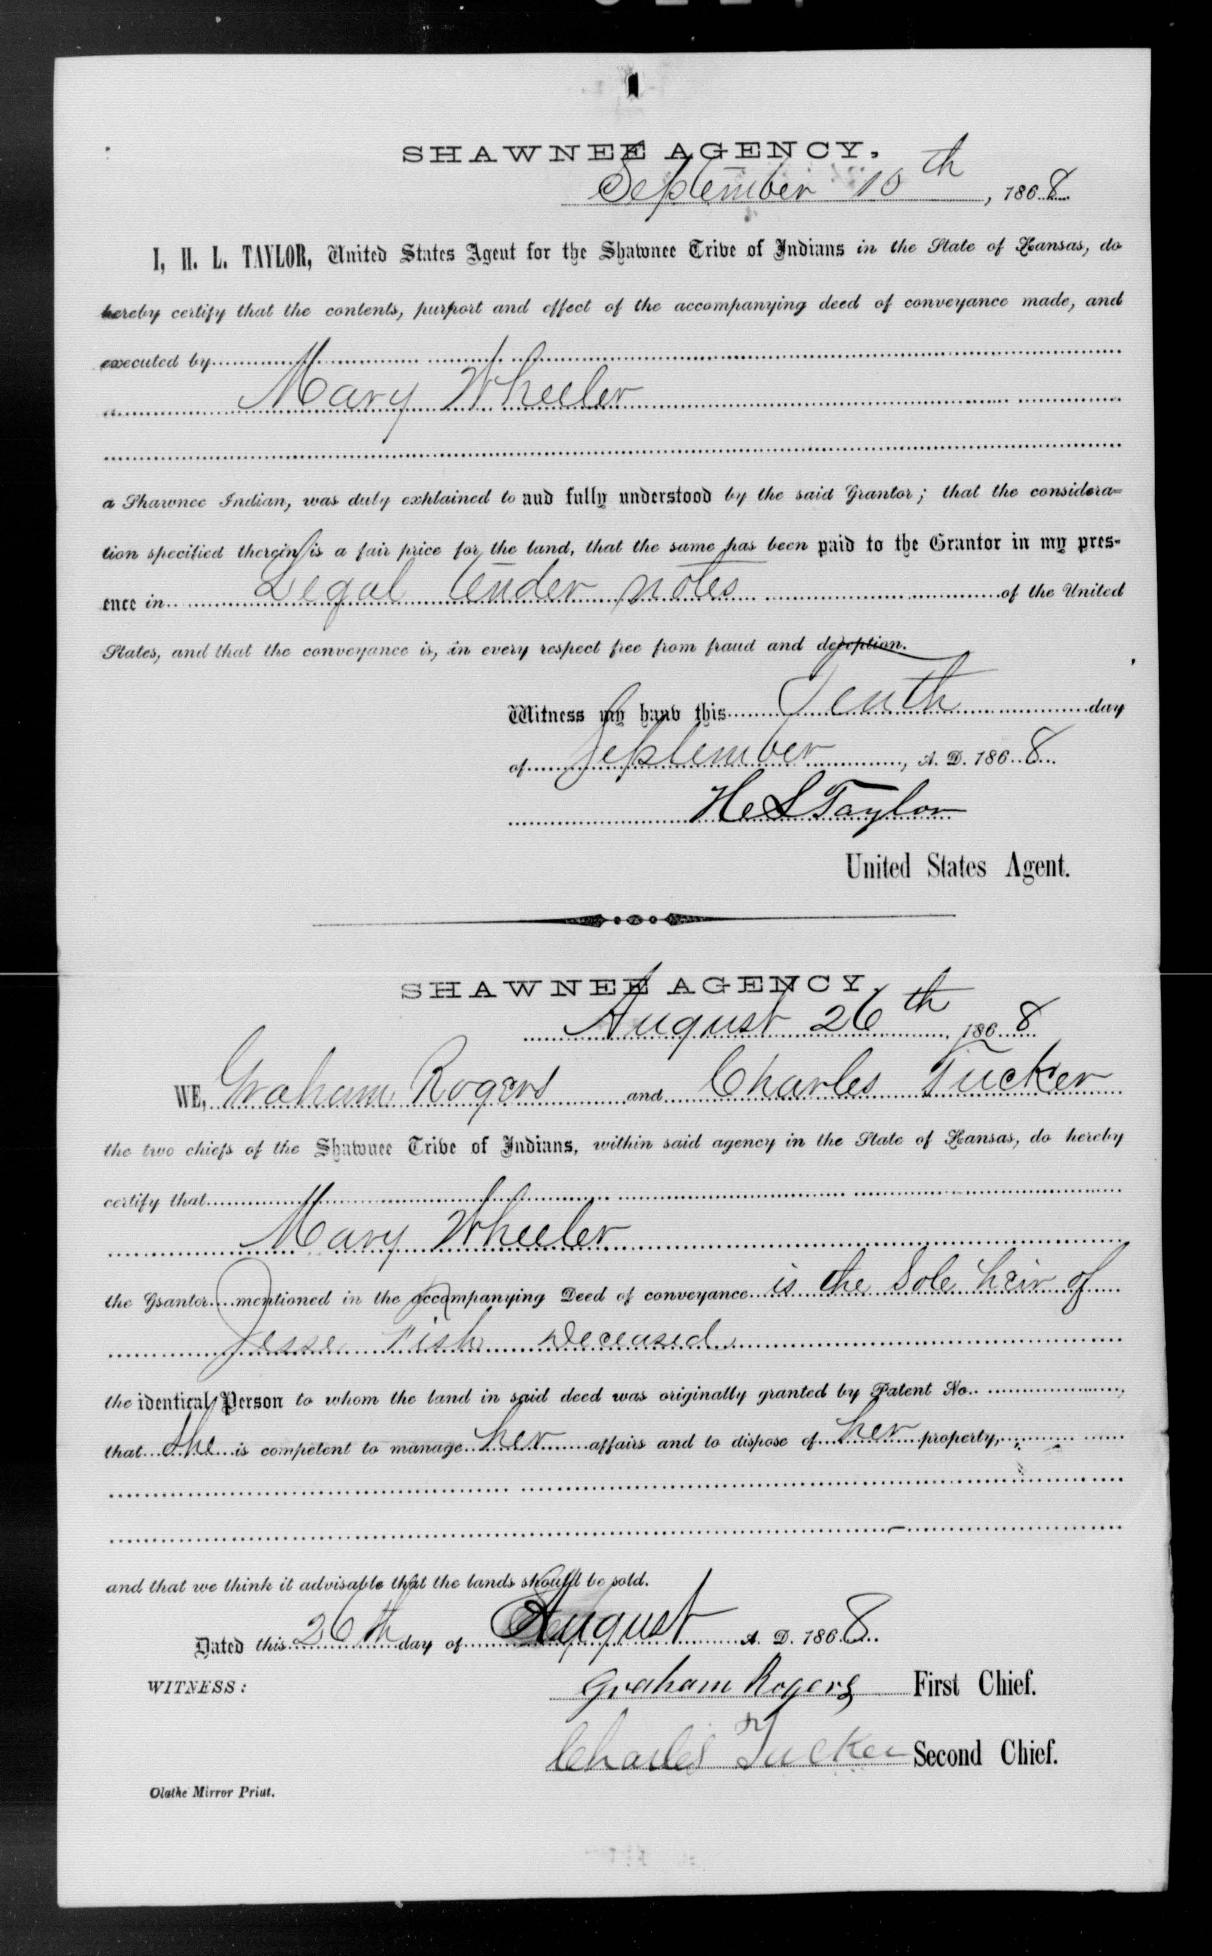 SHAWNEE AGENCY,
September 10th, 1868.
I, H. L. TAYLOR, United States Agent for the Shawnee Tribe of Indians in the State of Kansas, do
hereby certify that the contents, purport and effect of the accompanying deed of conveyance made, and
executed by
Mary Wheeler
a Shawnee Indian, was duly explained to and fully understood by the said Grantor; that the considera=
tion specified therein is a fair price for the land, that the same has been paid to the Grantor in my pres-
ence in Legal tender notes of the United
States, and that the conveyance is, in every respect free from fraud and deception.
Witness my hand this Tenth day
of September, A. D. 1868.
H L Taylor
United States Agent.
SHAWNEE AGENCY,
August 26th, 1868
WE, Graham Rogers and Charles Tucker
the two chiefs of the Shawnee Tribe of Indians, within said agency in the State of Kansas, do hereby
certify that
Mary Wheeler
the Grantor mentioned in the accompanying Deed of conveyance is the Sole heir of
Jesse Fish Deceased
the identical Person to whom the land in said deed was originally granted by Patent No.
that She is competent to manage her affairs and to dispose of her property,
and that we think it advisable that the lands should be sold.
Dated this 26th day of August A. D. 1868.
WITNESS:
Graham Rogers First Chief.
Charles Tucker Second Chief.
Olathe Mirror Print.